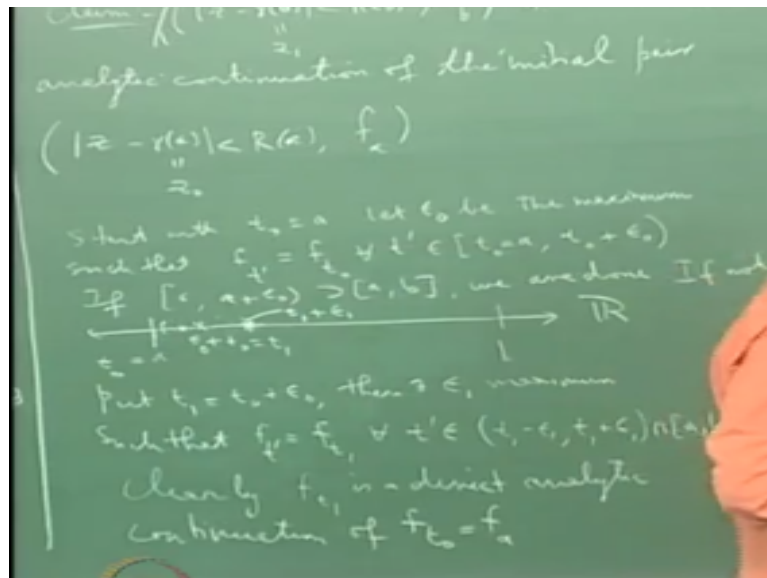 Claim - ((|z - γ(b)| < R(b), f_b)
=
z₁
analytic continuation of the initial pair
(|z - γ(a)| < R(a), f_a)
=
z₀
Start with t₀ = a let ε₀ be the maximum
such that f_t' = f_t₀ ∀ t' ∈ [t₀=a, t₀+ε₀)
If [a, a+ε₀) ⊃ [a, b], we are done If not
t₁+ε₁
ℝ
t₀ = a ε₀+t₀=t₁
Put t₁ = t₀ + ε₀, then ∃ ε₁ maximum
Such that f_t' = f_t₁ ∀ t' ∈ (t₁-ε₁, t₁+ε₁) ∩ [a,
Clearly f_t₁ is a direct analytic
continuation of f_t₀ = f_a